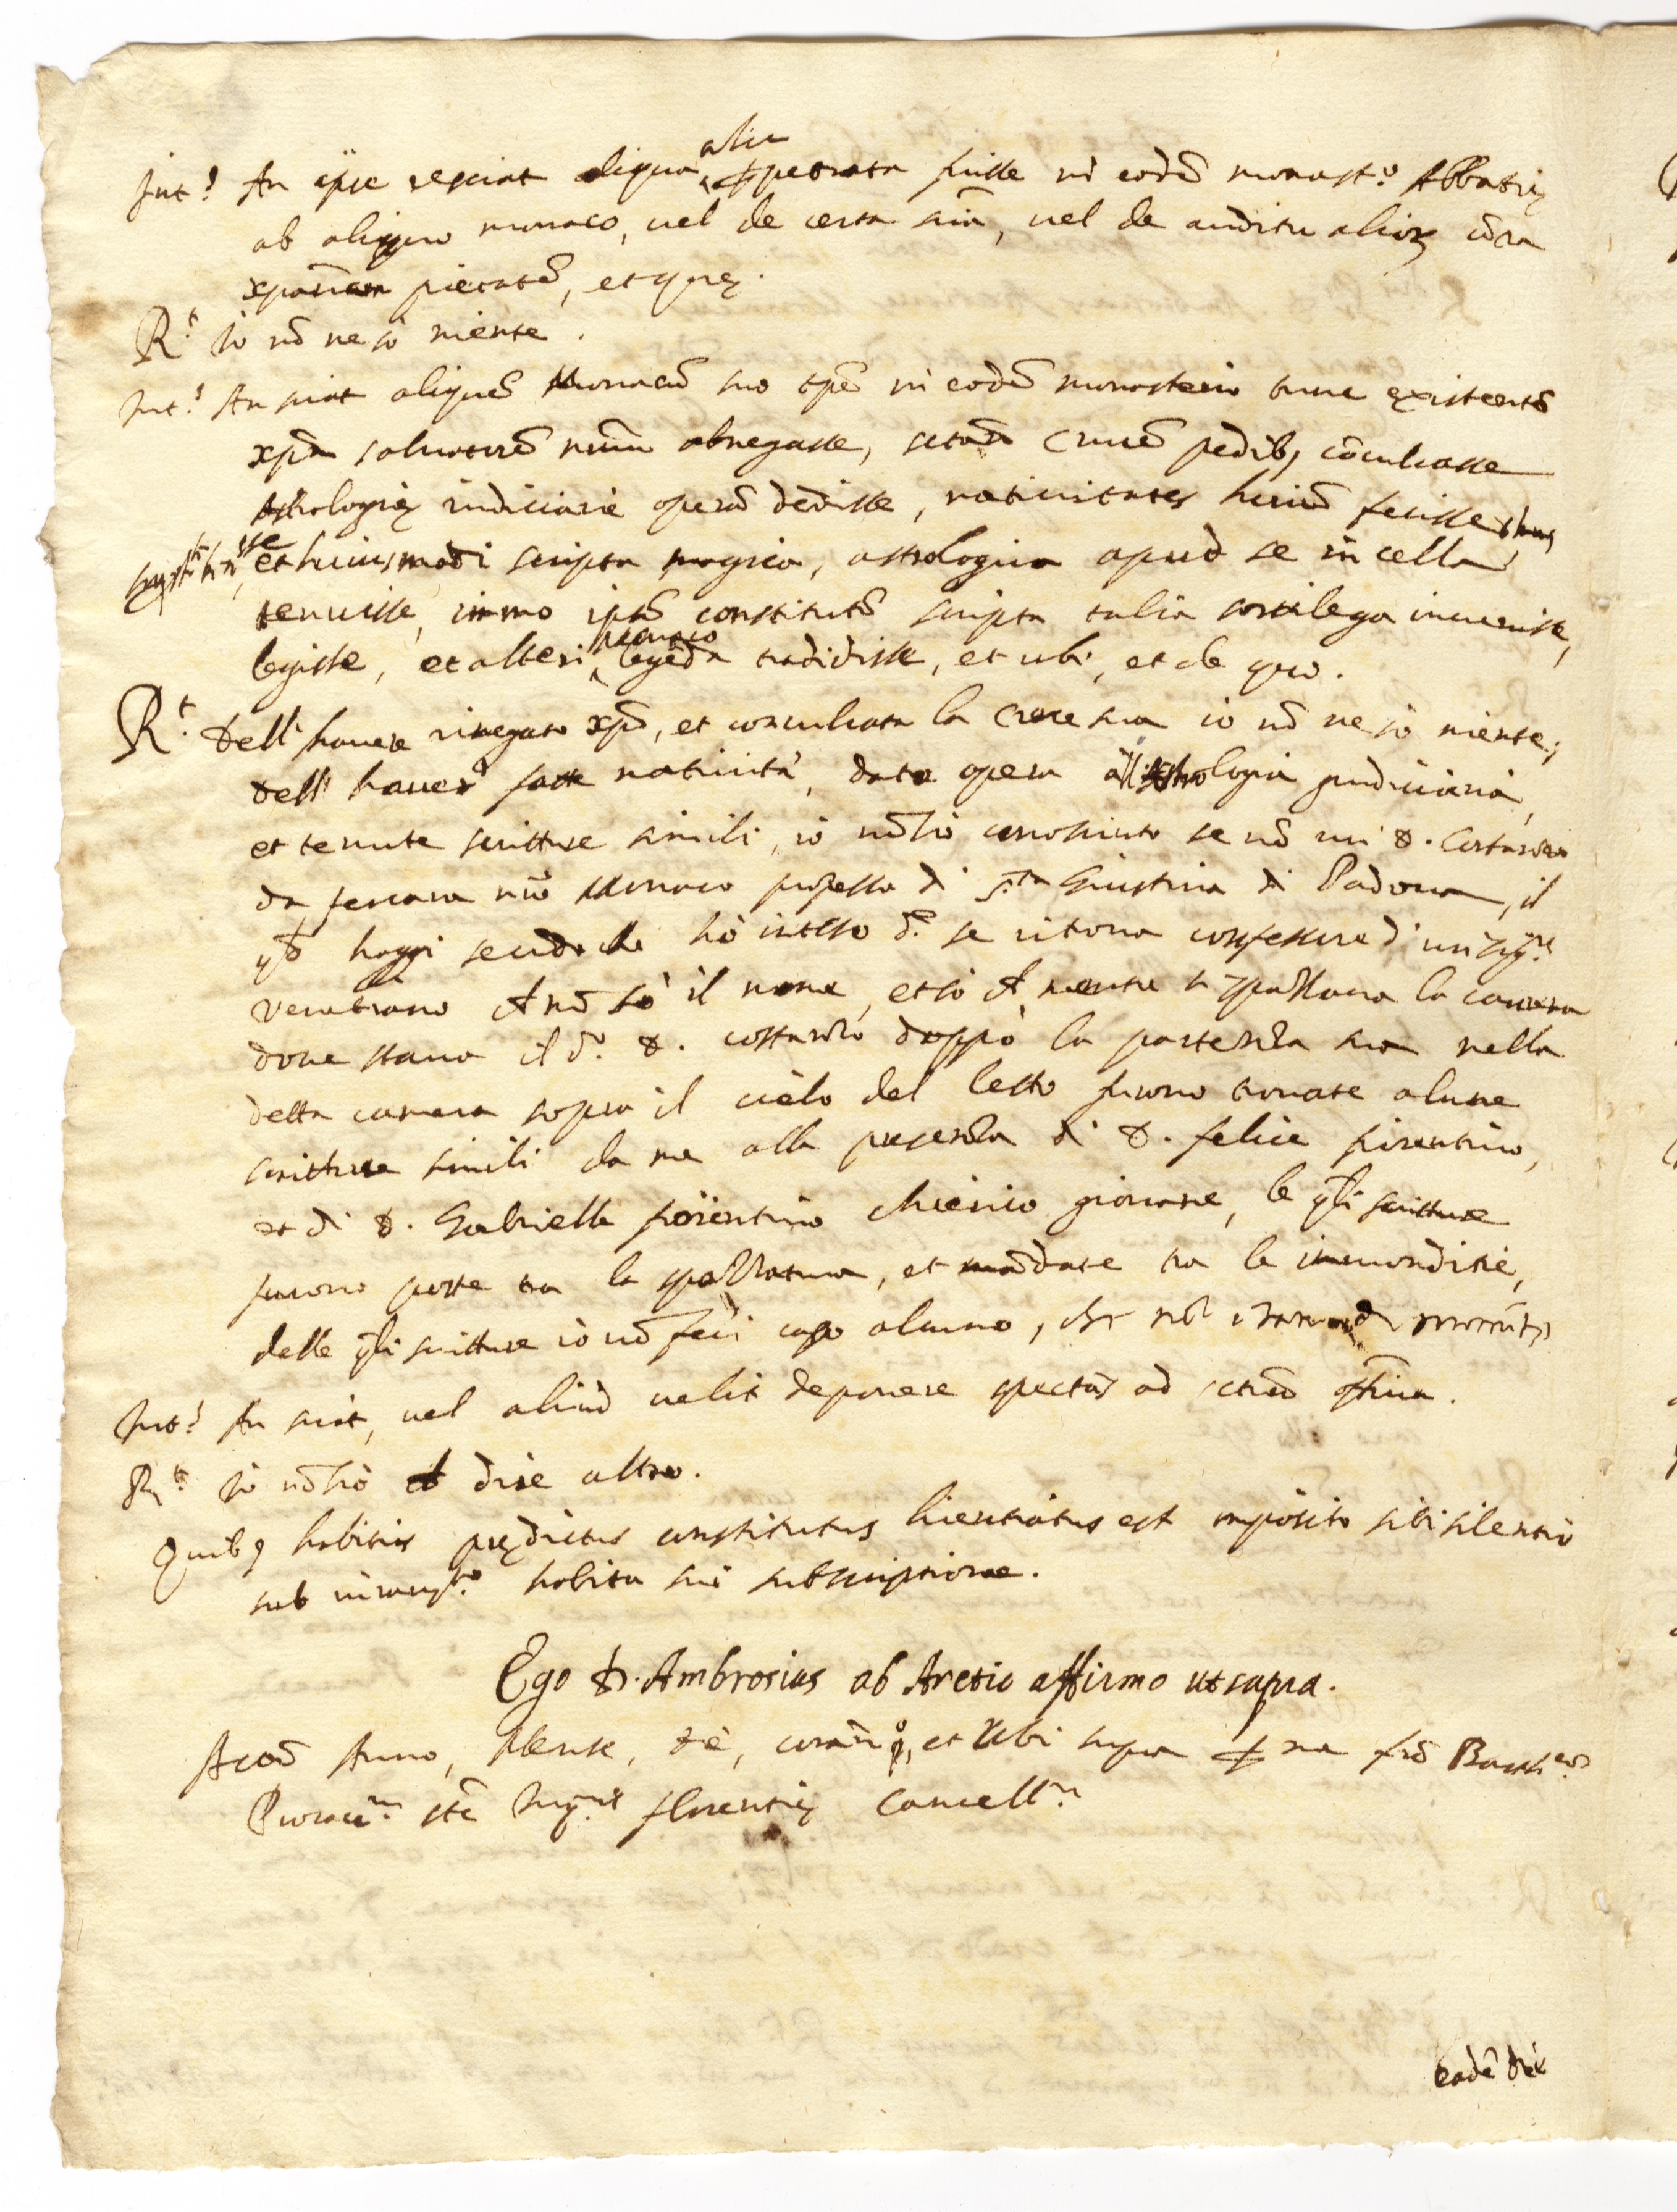 Int.s An ipse resciat aliqua alia perpetrata fuisse in eodē monast.o Abbatię
ab aliquo monaco, uel de certa sciā, uel de auditu alior. cōra
xpianam pietatē, et quę.
R.t Io nō ne sò niente.
Int.s An sciat aliquē Monacū suo tpē in eodē monasterio tunc existentē
xpm saluatorē nr̄um abnegasse, sctam Crucē pedib, cōculcasse
Astrologię iudiciarie operā dedisse, natiuitates fecisse
et huiusmodi scripta magica, astrologica apud se in cella
tenuisse, immo ipsū constitutū scripta talia sortilega inuenisse,
legisse, et alteri monaco legēda tradidisse, et ubi, et de quo.
R.t Dell' hauere rinegato xpō, et conculcata la Croce sua io nō ne sò niente;
dell' hauer fatte natiuità, dato opera all'Astrologia giudiciaria,
et tenute scritture simili, io nō hò conosciuto se nō un D. Costanzo
da ferrara nr̄o Monaco professo di S.ta Giustina di Padoua, il
qle hoggi secōdo che hò inteso d.o se ritroua confessore d'un sig.re
venetiano nō sò il nome, et sò mentre si spazzaua la camera
doue staua il d.o D. costanzo doppò la partenza sua nella
detta camera sopra il cielo del letto furono trouate alcune
scritture simili da me alla presenza di D. felice fiorentino,
et di D. Gabriello fiorentino chierico giouane, le qli scritture
furono poste tra la spazzatura, et mādate tra le immonditie,
delle qli scritture io nō feci caso alcuno,
Int.s An sciat, uel aliud uelit deponere spectās ad sctum offitiū.
R.t Io nō hò da dire altro.
Quibq habitis prędictus constitutus licentiatus est imposito sibi silentio
sub iuram.to habita sui subscriptione.
Ego D. Ambrosius ab Aretio affirmo ut supra.
Acta Anno, Mense, die, corā q, et Ubi supra per me
Scte Inq.nis florentię Cancell.m
eadē die